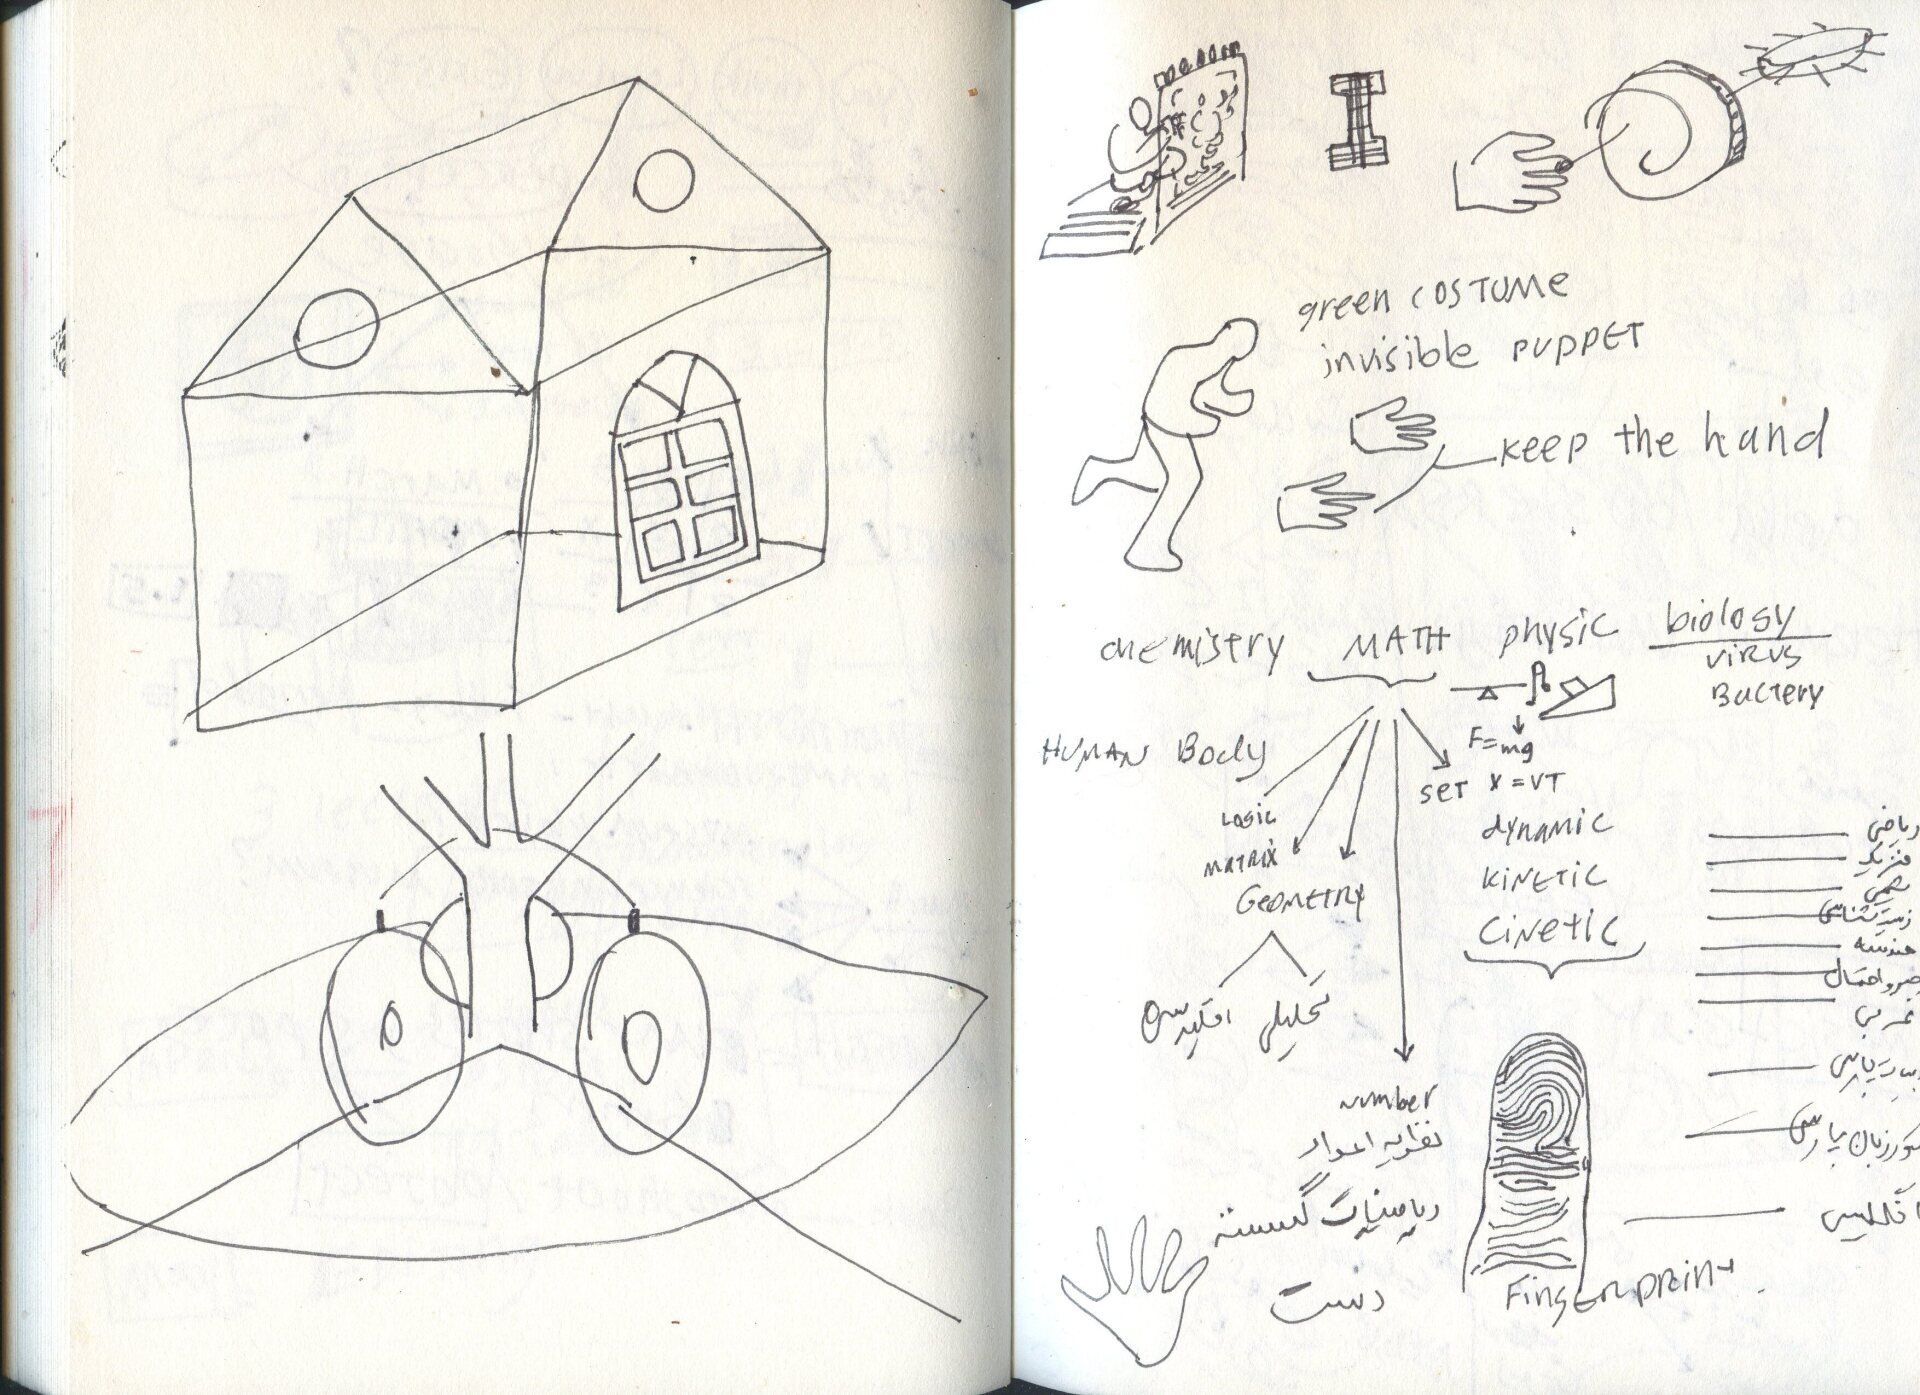 green COSTUME
invisible PUPPET
KEEP the hand
chemistry MATH physic biology
VIRUS
Bactery
F=mg
HUMAN Body
SET X=VT
LOGIC
dynamic
MATRIX
KINETIC
GEOMETRY
CiNEtiC
ریاضی
فیزیک
شیمی
زیست‌شناسی
هندسه
جبر و احتمال
عربی
تحلیلی اقلیدسی
number
نظریه اعداد
ریاضیات گسسته
زبان پارسی
انگلیسی
دست
FingERPRint